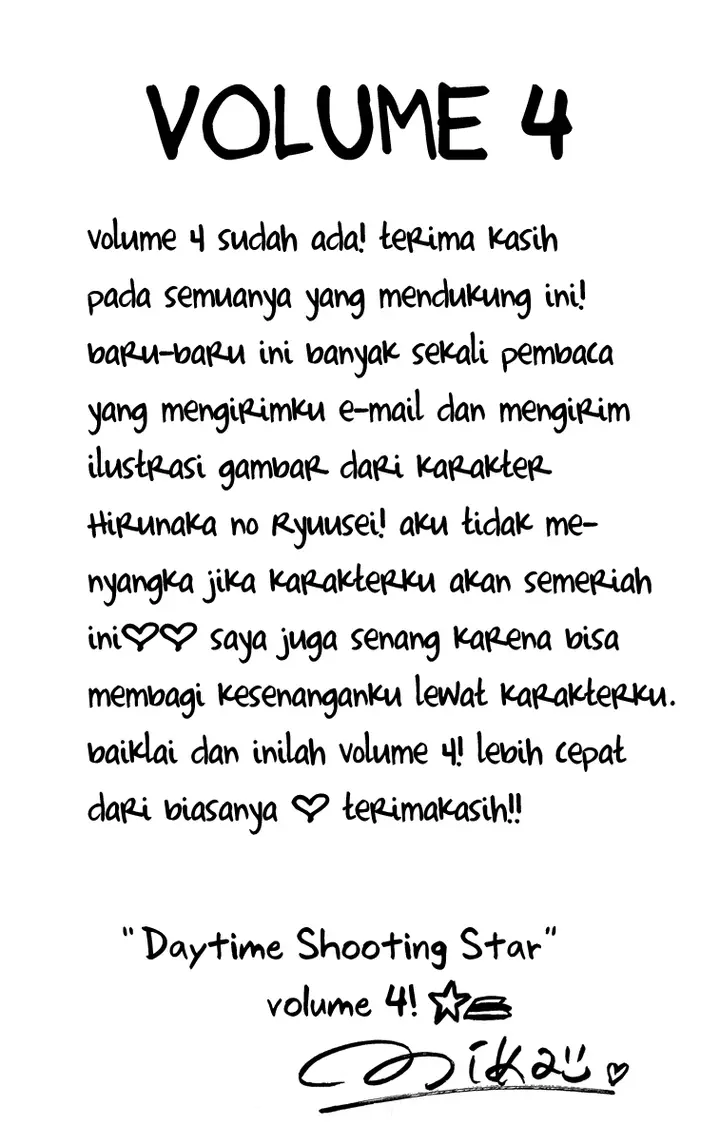 VOLUME 4
volume 4 sudah ada! terima kasih
pada semuanya yang mendukung ini!
baru-baru ini banyak sekali pembaca
yang mengirimku e-mail dan mengirim
ilustrasi gambar dari karakter
Hirunaka no Ryuusei! aku tidak me-
nyangka jika karakterku akan semeriah
ini♡♡ saya juga senang karena bisa
membagi kesenanganku lewat karakterku.
baiklai dan inilah volume 4! lebih cepat
dari biasanya ♡ terimakasih!!
"Daytime Shooting Star"
volume 4!